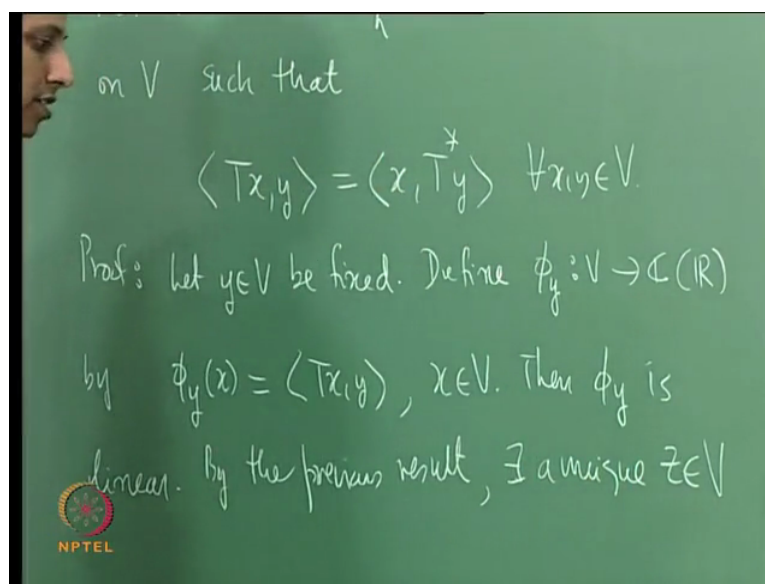 on V such that
⟨Tx,y⟩ = ⟨x, T*y⟩ ∀x,y∈V.
Proof: Let y∈V be fixed. Define ϕ_y : V → ℂ (ℝ)
by ϕ_y(x) = ⟨Tx,y⟩, x∈V. Then ϕ_y is
linear. By the previous result, ∃ a unique z∈V
NPTEL